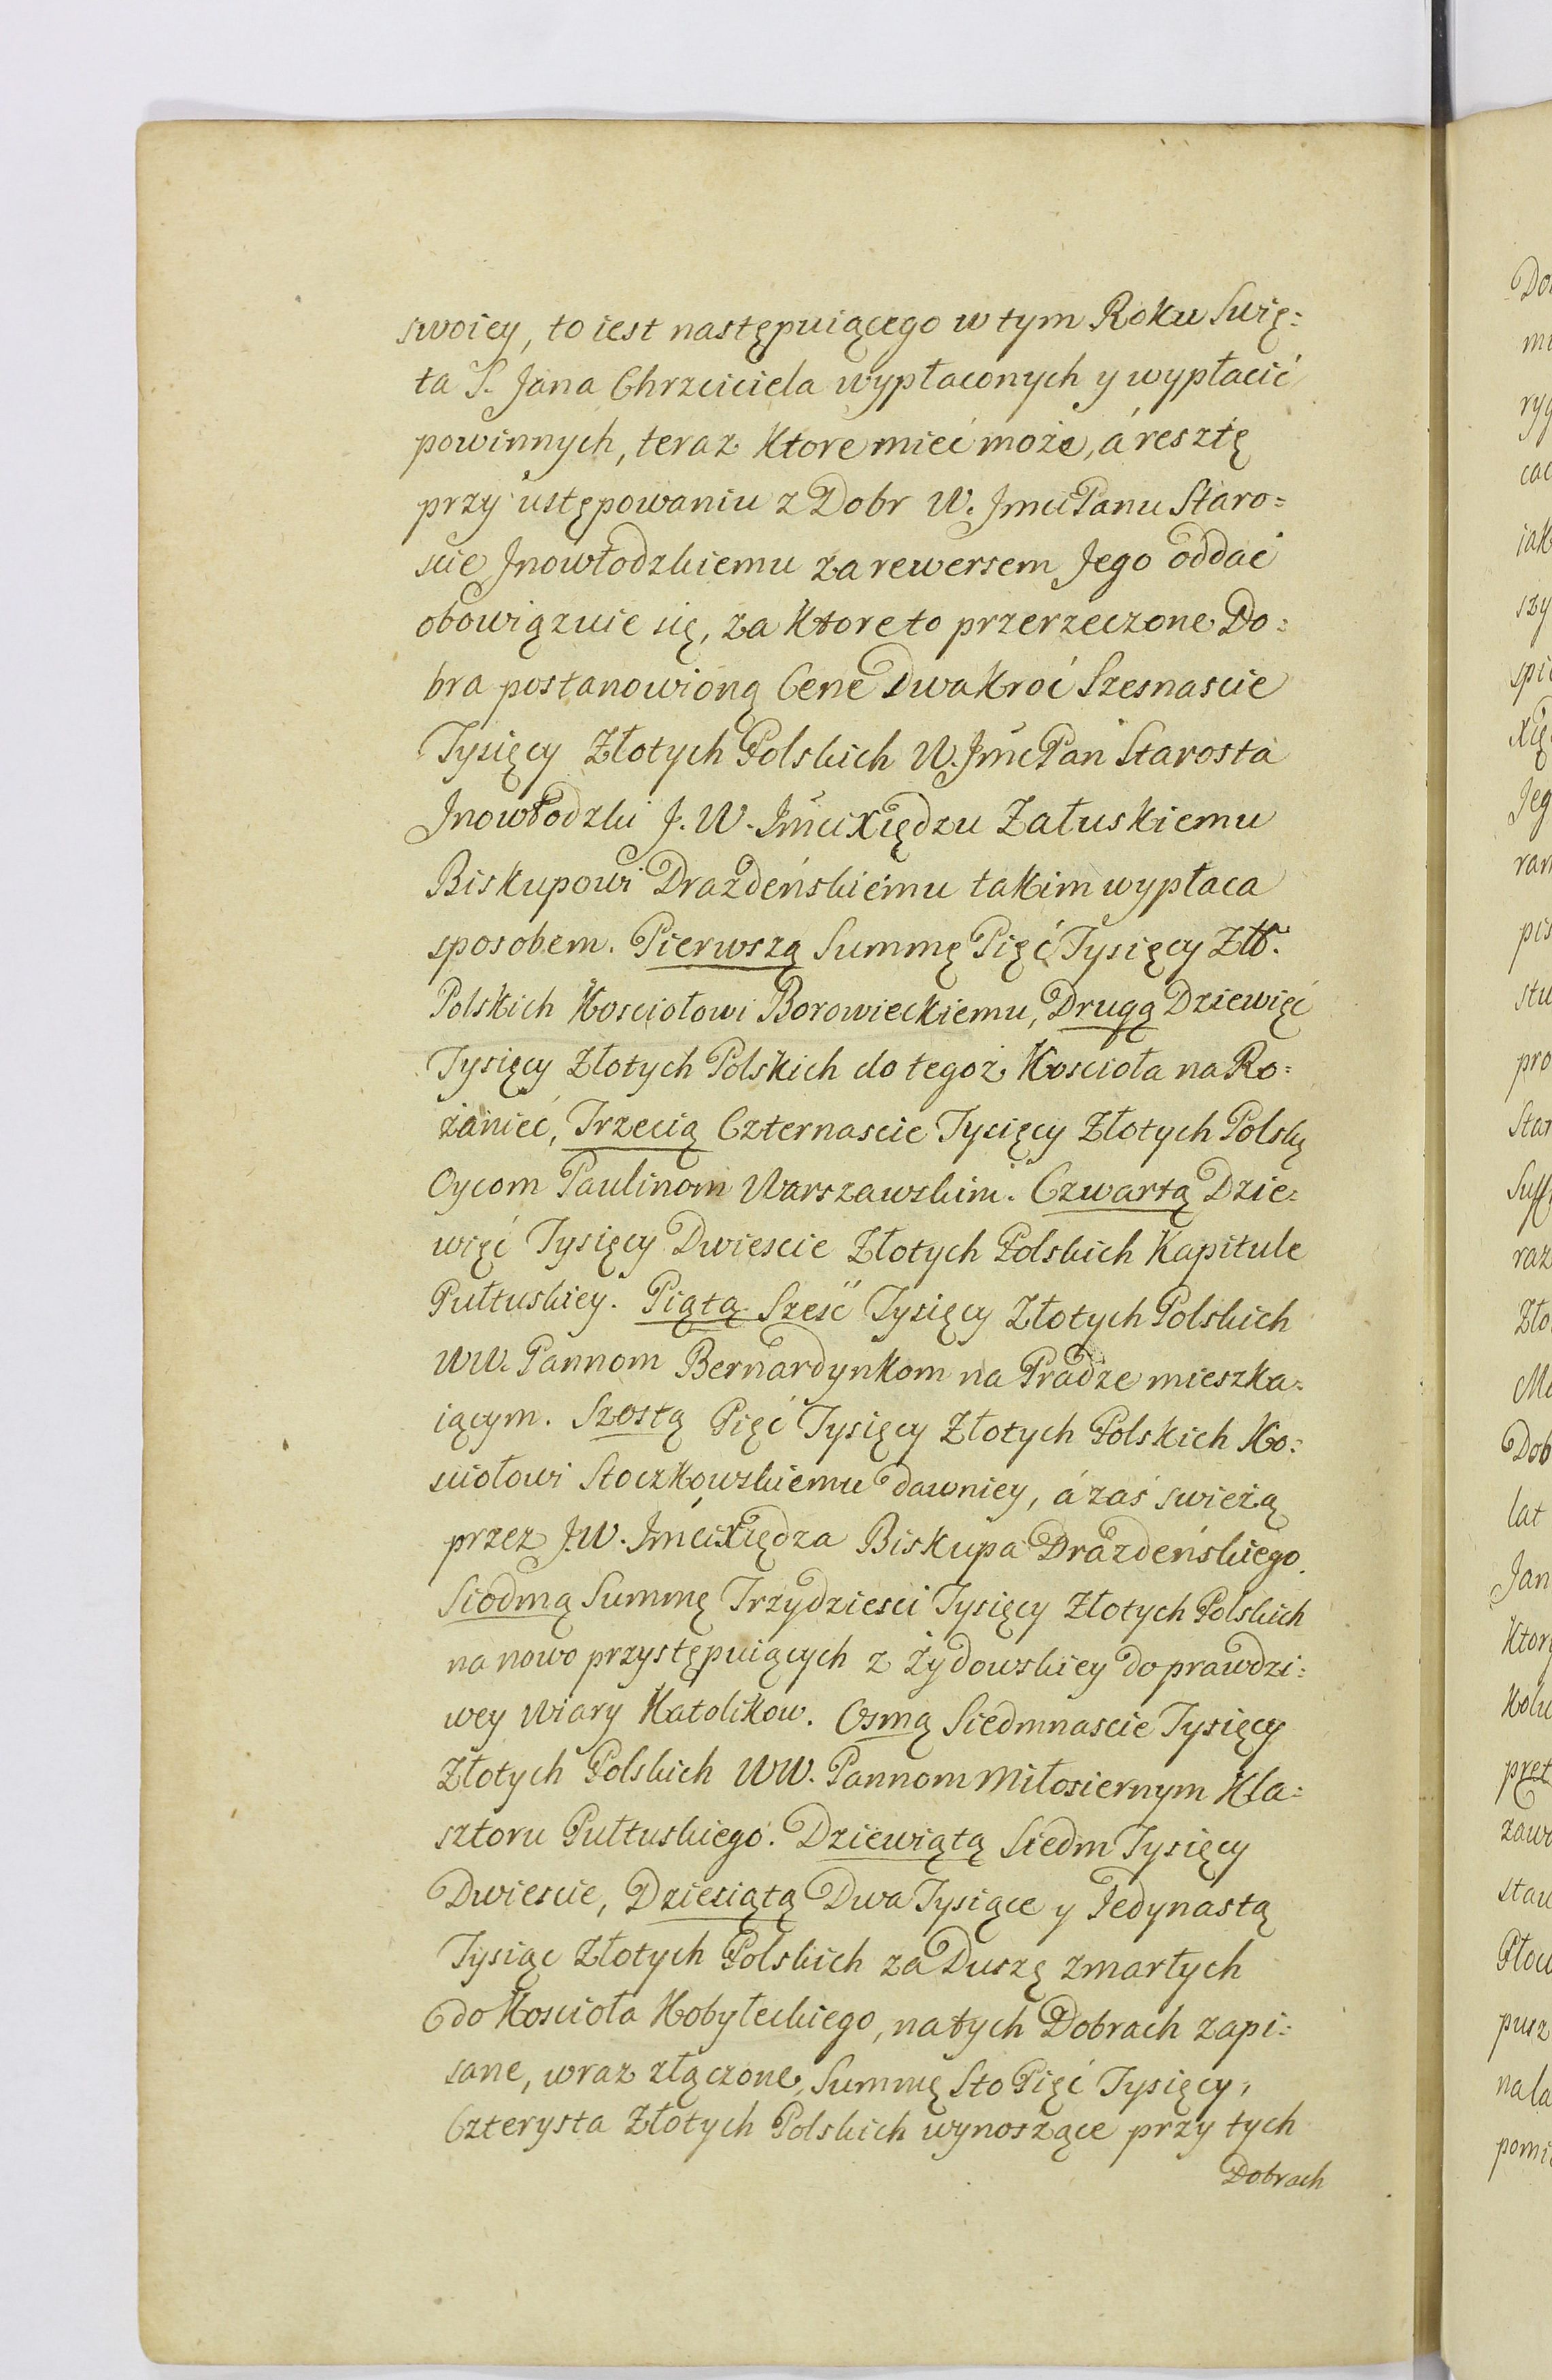 swoiey, to iest następuiącego w tym Roku Swię=
ta S. Jana Chrzciciela wypłaconych y wypłacić
powinnych, teraz Ktore mieć może, á resztę
przy ustępowaniu z Dobr W. Jmci Panu Staro=
scie Jnowłodzkiemu za rewersem Jego oddać
obowiązuie się, za Ktore to przerzeczone Do=
bra postanowioną Cenę Dwakroć Szesnascie
Tysięcy Złotych Polskich W. Jmć Pan Starosta
Jnowłodzki J. W. Jmci Xiędzu Załuskiemu
Biskupowi Drazdeńskiemu takim wypłaca
sposobem. Pierwszą Summę Pięć Tysięcy Złł.
Polskich Kosciołowi Borowieckiemu, Drugą Dziewięć
Tysięcy Złotych Polskich do tegoż Koscioła na Ro=
żaniec, Trzecią Czternascie Tysięcy Złotych Polsk.
Oycom Paulinom Warszawskim. Czwartą Dzie=
więć Tysięcy Dwiescie Złotych Polskich Kapitule
Pułtuskiey. Piątą Sześć Tysięcy Złotych Polskich
WW. Pannom Bernardynkom na Pradze mieszka=
iącym. Szostą Pięć Tysięcy Złotych Polskich Ko=
sciołowi Stoczkowskiemu dawniey, á zaś swieżą
przez J.W. Jmci Xiędza Biskupa Drazdeńskiego.
Siodmą Summę Trzydziesci Tysięcy Złotych Polskich
na nowo przystępuiących z Żydowskiey do prawdzi=
wey Wiary Katolikow. Osmą Siedmnascie Tysięcy
Złotych Polskich WW. Pannom Miłosiernym Kla=
sztoru Pułtuskiego. Dziewiątą Siedm Tysięcy
Dwiescie, Dziesiątą Dwa Tysiące y Jedynastą
Tysiąc Złotych Polskich za Duszę zmarłych
do Koscioła Kobyłeckiego, na tych Dobrach zapi=
sane, wraz złączone, Summę Sto Pięć Tysięcy,
Czterysta Złotych Polskich wynoszące przy tych
Dobrach